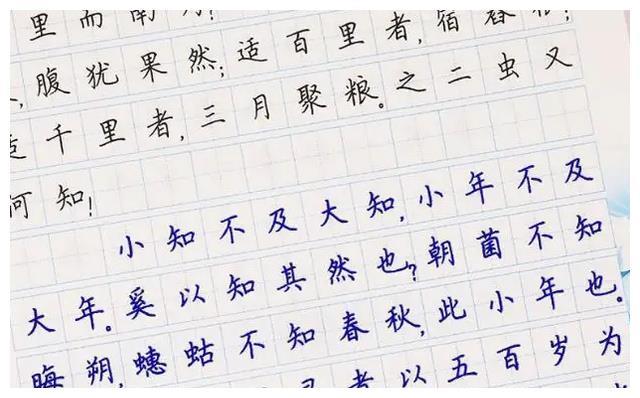 里而南为?
腹犹果然;适百里者,宿舂粮;
适千里者,三月聚粮。之二虫又
何知!
小知不及大知,小年不及
大年。奚以知其然也?朝菌不知
晦朔,蟪蛄不知春秋,此小年也。
者以五百岁为